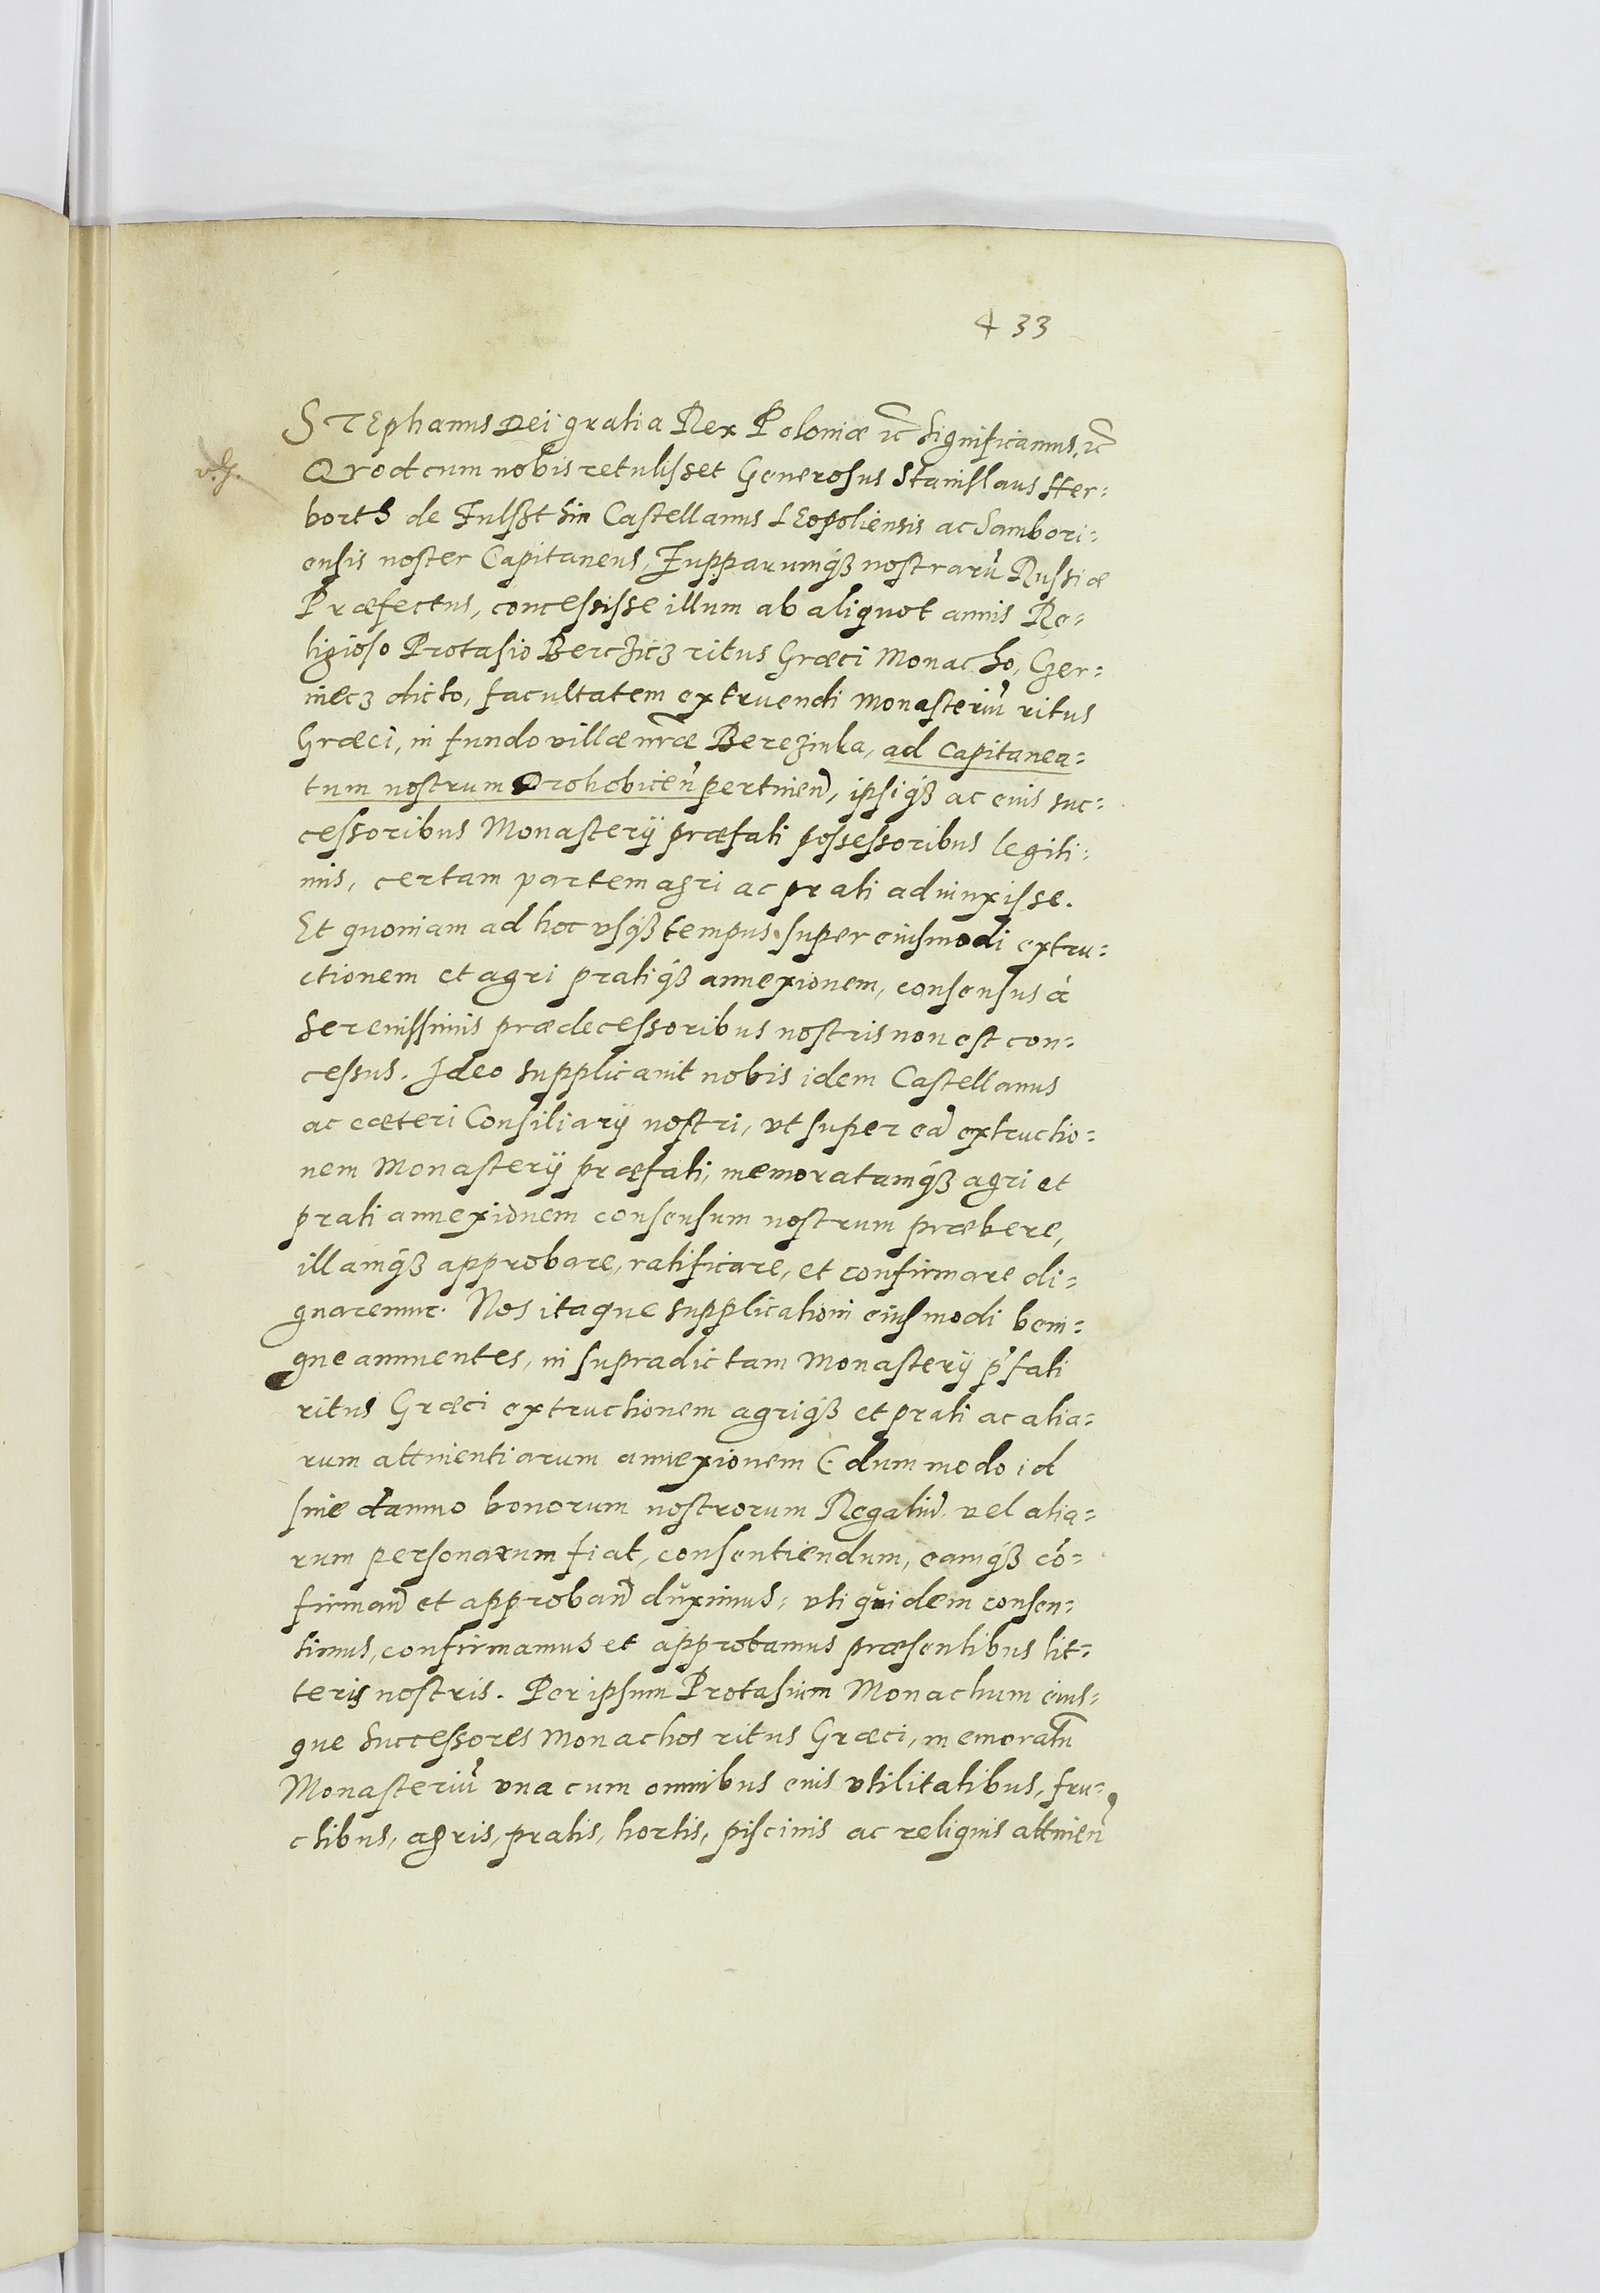 433
STEphanus Dei gratia Rex Poloniæ ec̃ significamus, ec̃
Quod cum nobis retulisset Generosus Stanislaus Her=
borth de Fulßthin Castellanus LEopoliensis ac Sambori=
ensis noster Capitaneus, Zupparumq́ꝫ nostrarũ Russiæ
Præfectus, concessisse illum ab aliquot annis Re=
ligioso Protasio Berczicz ritus Græci Monacho, Czer=
niecz dicto, facultatem extruendi monasteriũ ritus
Græci, in fundo villæ nr̃æ Berezinka, ad Capitanea=
tum nostrum Drohobiceñ pertineñ, ipsiq́ꝫ ac eius suc=
cessoribus Monasterij præfati possessoribus legiti=
mis, certam partem agri ac prati adiunxisse.
Et quoniam ad hoc vsq́ꝫ tempus super eiusmodi extru=
ctionem et agri pratiq́ꝫ annexionem, consensus à
serenissimis prædecessoribus nostris non est con=
cessus. Ideo supplicauit nobis idem Castellanus
ac cæteri Consiliarij nostri, vt super eã extructio=
nem Monasterij præfati, memoratamq́ꝫ agri et
prati annexionem consensum nostrum præbere,
illamq́ꝫ approbare, ratificare, et confirmare di=
gnaremur. Nos itaque supplicationi eiusmodi beni=
gne annuentes, in supradictam Monasterij p̃fati
ritus Græci extructionem agriq́ꝫ et prati ac alia=
rum attinentiarum annexionem (dummodo id
sine damno bonorum nostrorum Regaliũ vel alia=
rum personarum fiat, consentiendum, eamq́ꝫ cõ=
firmañ et approbañ duximus, vti quidem consen=
timus, confirmamus et approbamus præsentibus lit=
teris nostris. Per ipsum Protasium Monachum eius=
que successores Monachos ritus Græci, memoratũ
Monasteriũ vna cum omnibus eius vtilitatibus, fru=
ctibus, agris, pratis, hortis, piscinis ac reliquis attineñ